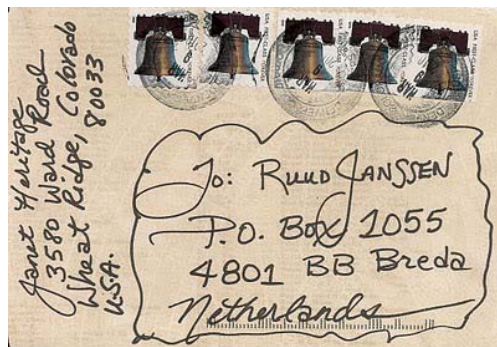 Janet Heritage
3580 Ward Road
Wheat Ridge, Colorado
80033
U.S.A.
To: RUUD JANSSEN
P.O. Box 1055
4801 BB Breda
Netherlands